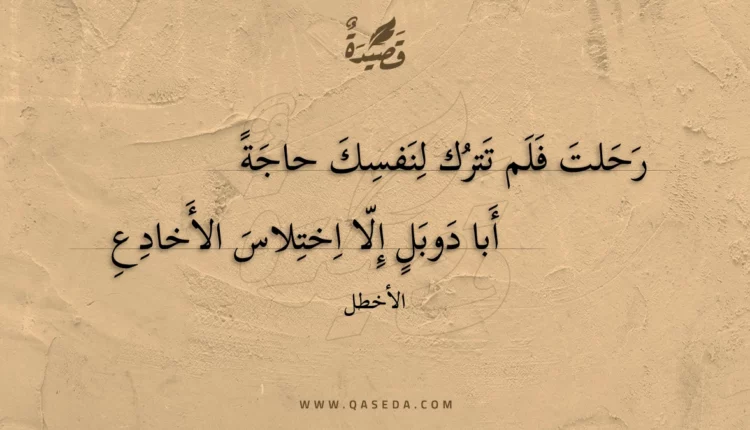 قَصِيدَةٌ
رَحَلتَ فَلَم تَترُك لِنَفسِكَ حاجَةً
أَبا دَوبَلٍ إِلّا اِختِلاسَ الأَخادِعِ
الأخطل
WWW.QASEDA.COM